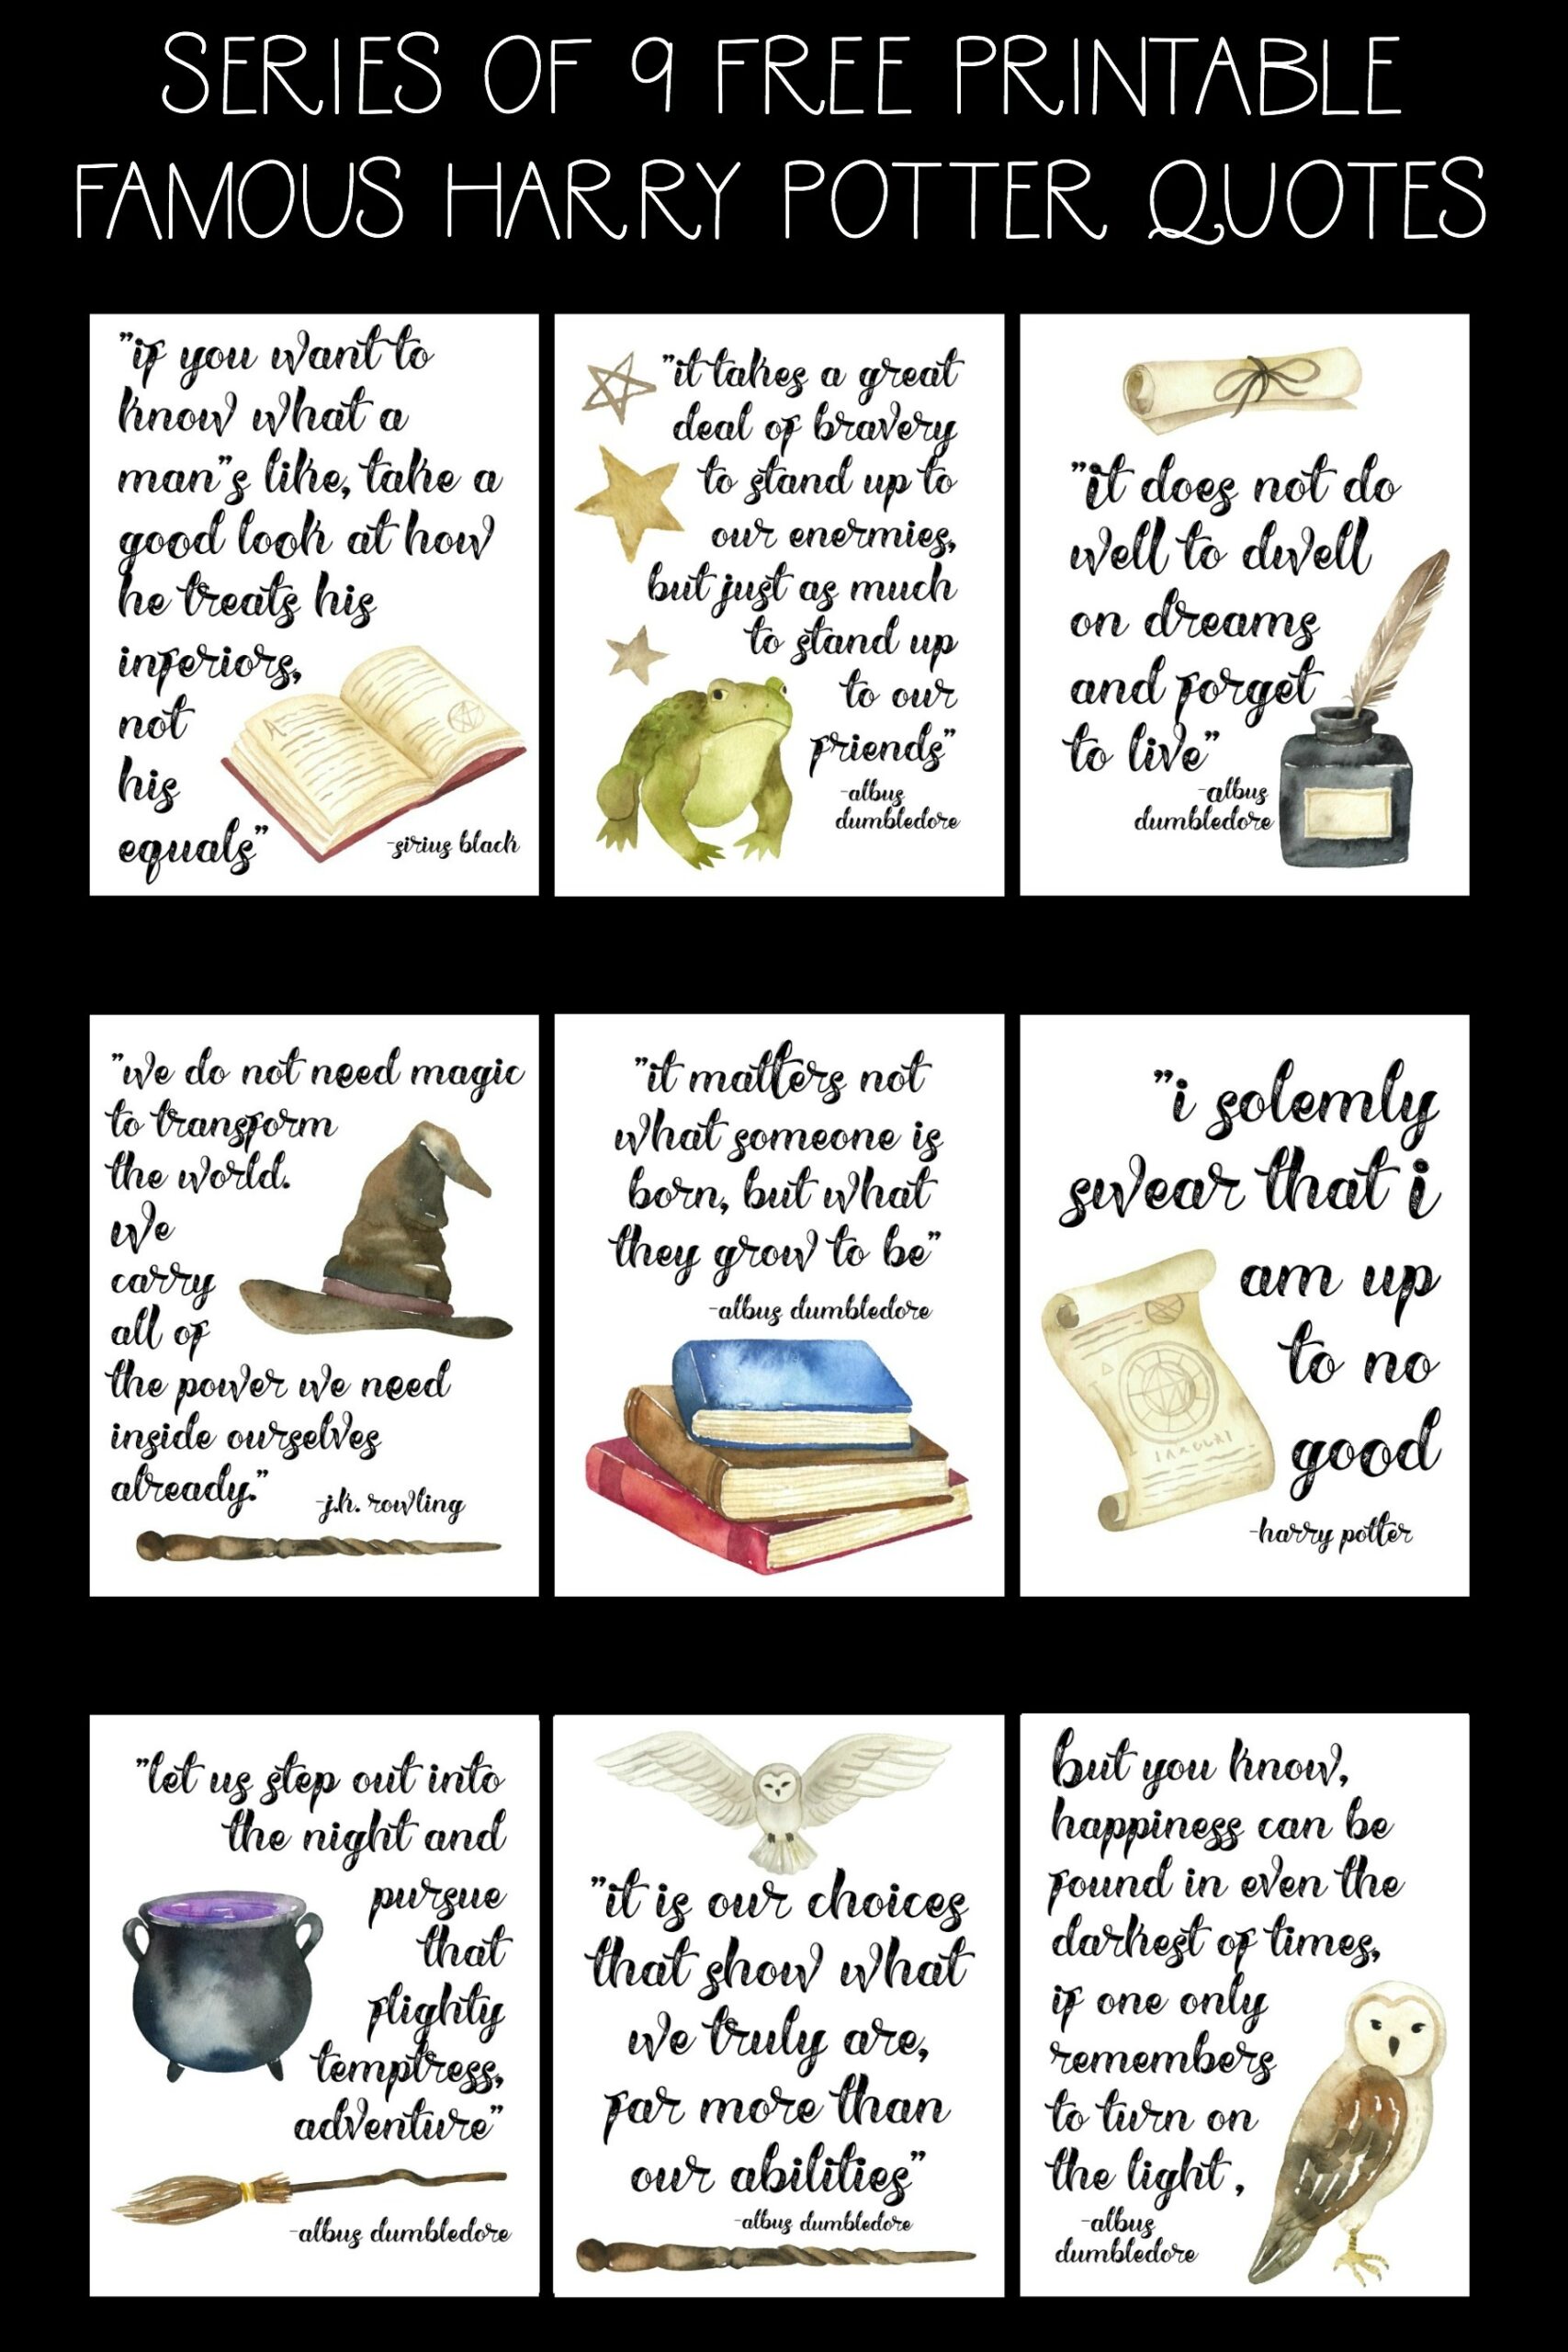 SERIES OF 9 FREE PRINTABLE
FAMOUS HARRY POTTER QUOTES
"if you want to
know what a
man"s like, take a
good look at how
he treats his
inferiors,
not
his
equals"
-sirius black
"it takes a great
deal of bravery
to stand up to
our enermies,
but just as much
to stand up
to our
friends"
-albus
dumbledore
"it does not do
well to dwell
on dreams
and forget
to live"
-albus
dumbledore
"we do not need magic
to transform
the world.
we
carry
all of
the power we need
inside ourselves
already."
-j.k. rowling
"it matters not
what someone is
born, but what
they grow to be"
-albus dumbledore
"i solemly
swear that i
am up
to no
good
-harry potter
"let us step out into
the night and
pursue
that
flighty
temptress,
adventure"
-albus dumbledore
"it is our choices
that show what
we truly are,
far more than
our abilities"
-albus dumbledore
but you know,
happiness can be
found in even the
darkest of times,
if one only
remembers
to turn on
the light,
-albus
dumbledore